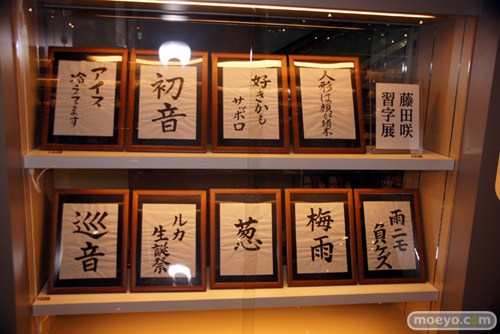 アイス
冷えてます
初音
好きかも
サッポロ
人形は顔が
藤田咲
習字展
巡音
ルカ
生誕祭
葱
梅雨
雨ニモ
負ケズ
moeyo.com